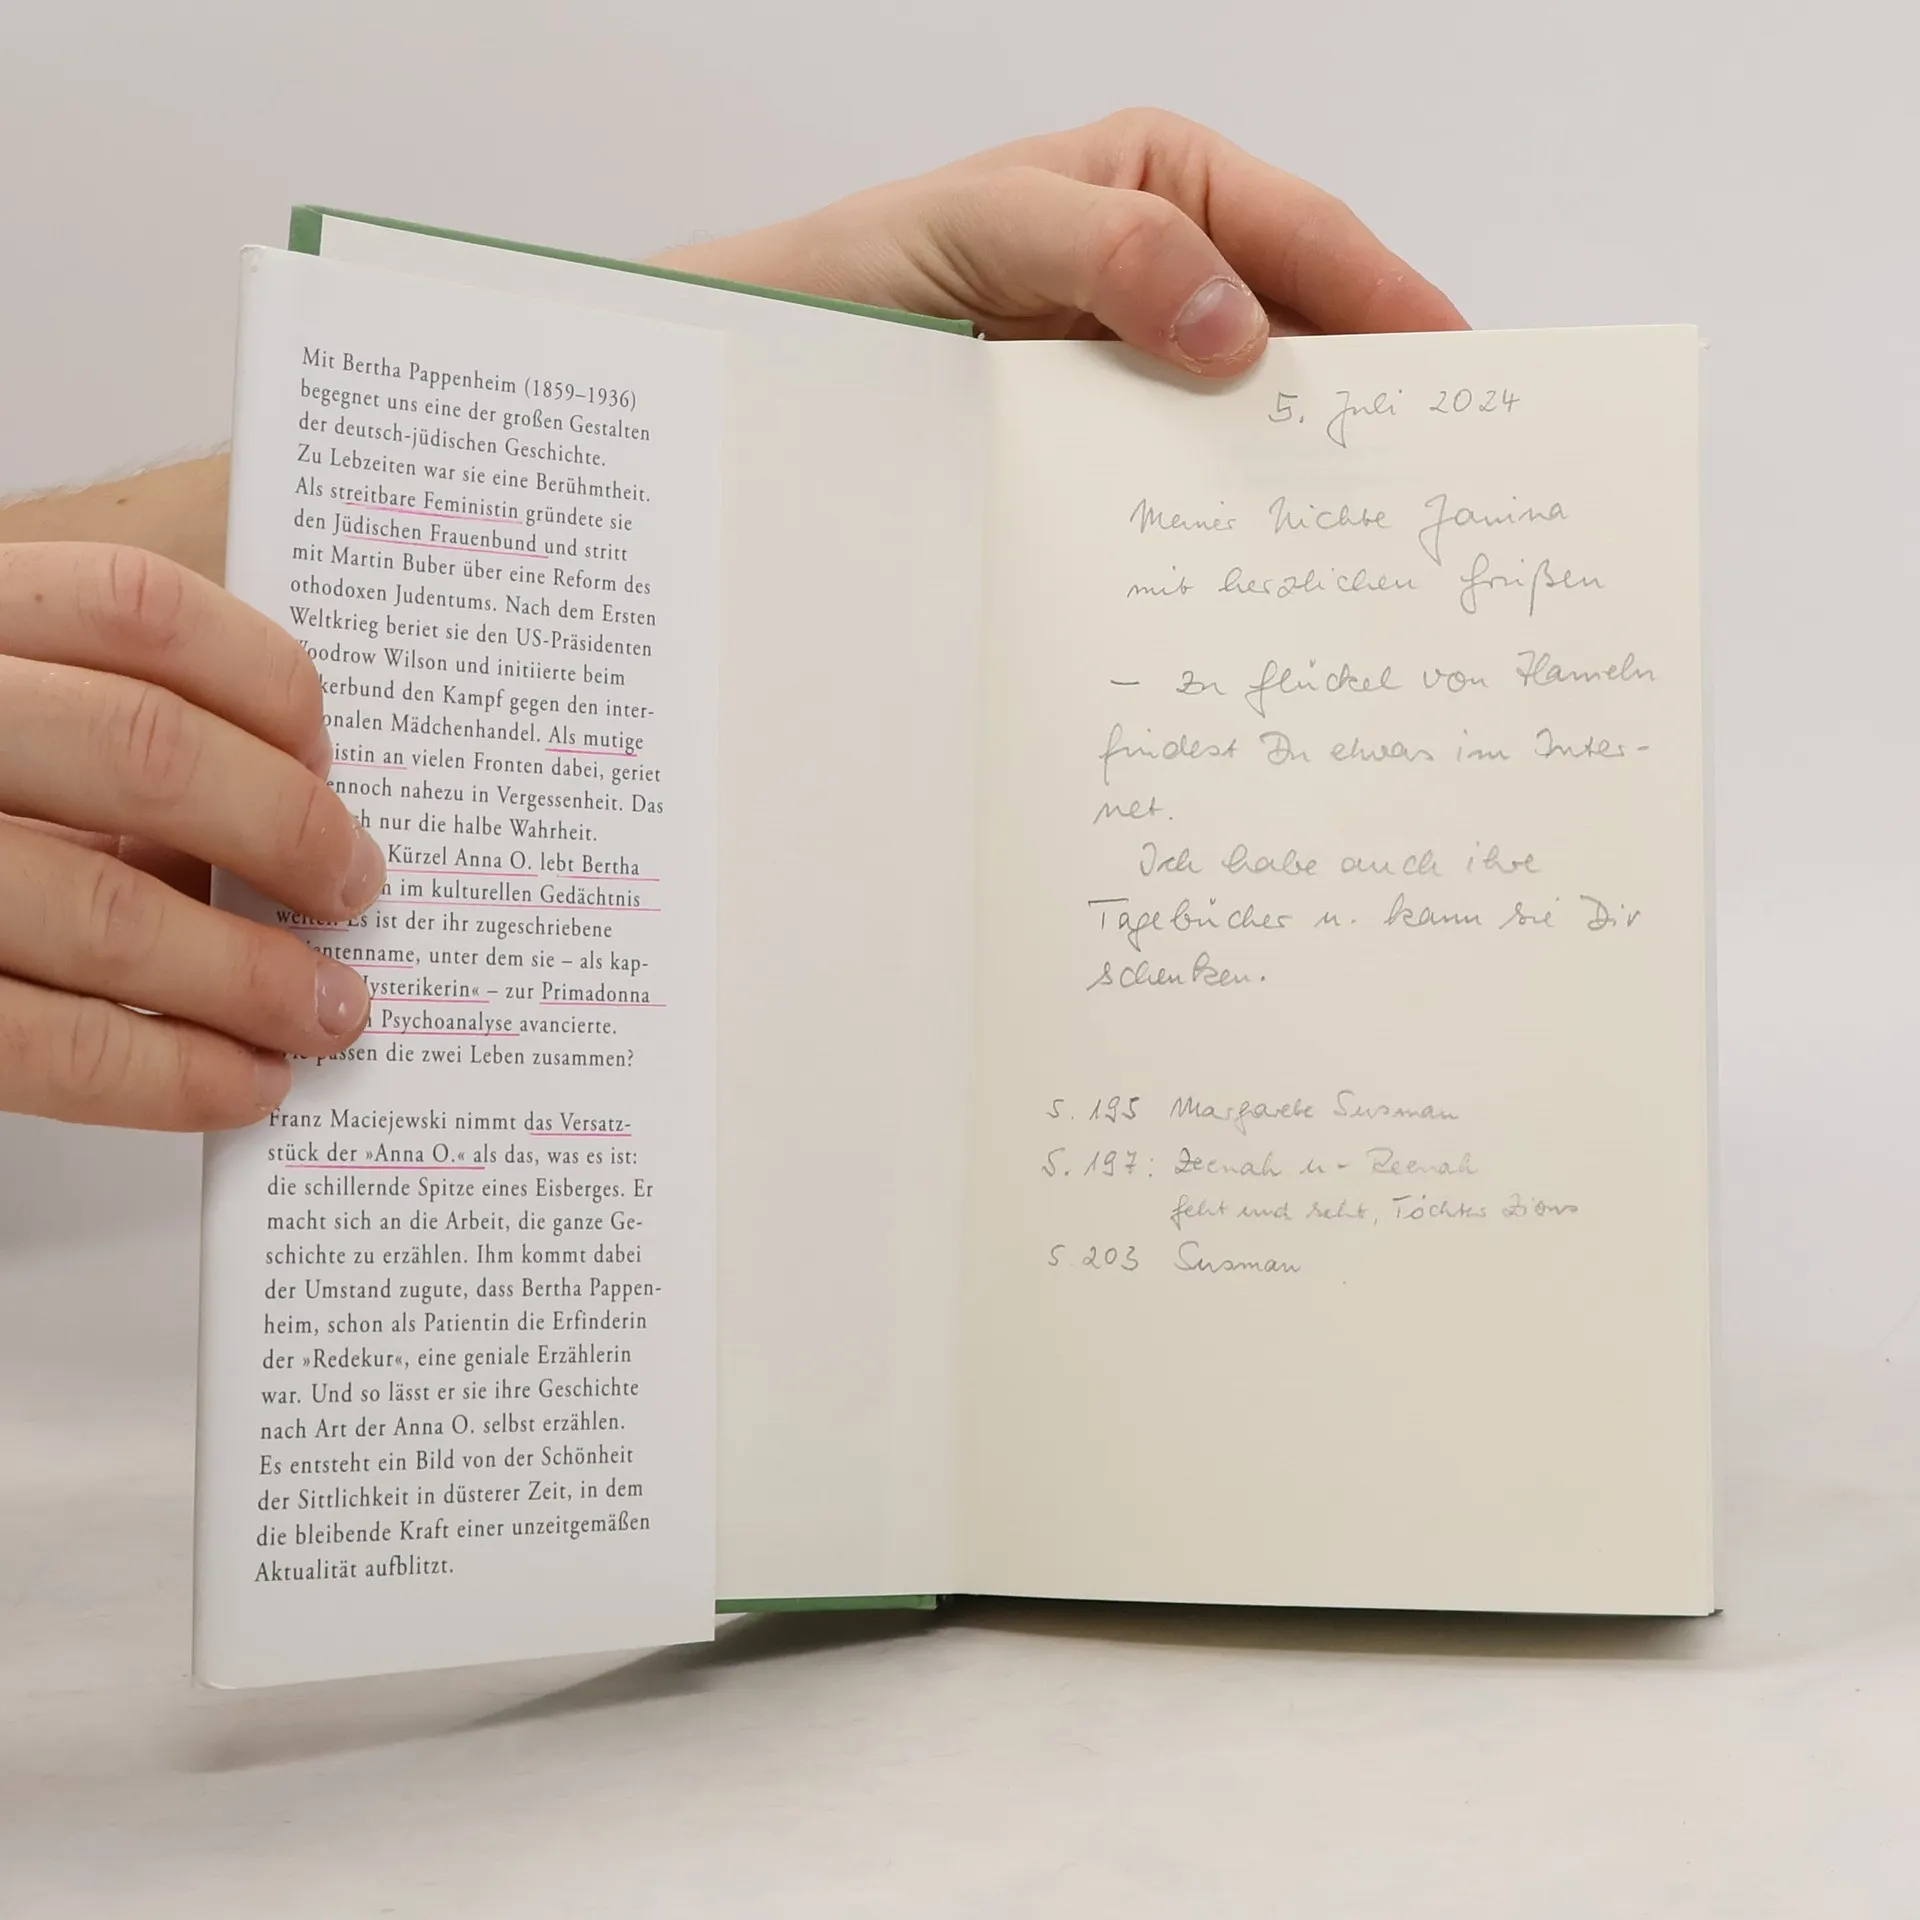 Mit Bertha Pappenheim (1859–1936)
begegnet uns eine der großen Gestalten
der deutsch-jüdischen Geschichte.
Zu Lebzeiten war sie eine Berühmtheit.
Als streitbare Feministin gründete sie
den Jüdischen Frauenbund und stritt
mit Martin Buber über eine Reform des
othodoxen Judentums. Nach dem Ersten
Weltkrieg beriet sie den US-Präsidenten
oodrow Wilson und initiierte beim
kerbund den Kampf gegen den inter-
onalen Mädchenhandel. Als mutige
istin an vielen Fronten dabei, geriet
ennoch nahezu in Vergessenheit. Das
h nur die halbe Wahrheit.
Kürzel Anna O. lebt Bertha
n im kulturellen Gedächtnis
weiter. Es ist der ihr zugeschriebene
entenname, unter dem sie – als kap-
ysterikerin« – zur Primadonna
Psychoanalyse avancierte.
passen die zwei Leben zusammen?
Franz Maciejewski nimmt das Versatz-
stück der »Anna O.« als das, was es ist:
die schillernde Spitze eines Eisberges. Er
macht sich an die Arbeit, die ganze Ge-
schichte zu erzählen. Ihm kommt dabei
der Umstand zugute, dass Bertha Pappen-
heim, schon als Patientin die Erfinderin
der »Redekur«, eine geniale Erzählerin
war. Und so lässt er sie ihre Geschichte
nach Art der Anna O. selbst erzählen.
Es entsteht ein Bild von der Schönheit
der Sittlichkeit in düsterer Zeit, in dem
die bleibende Kraft einer unzeitgemäßen
Aktualität aufblitzt.
5. Juli 2024
Meiner Nichte Janina
mit herzlichen Grüßen
– Zu Glückel von Hameln
findest Du etwas im Inter-
net.
Ich habe auch ihre
Tagebücher u. kann sie Dir
schenken.
S. 195 Margarete Susman
S. 197: Zeenah u- Reenah
Geht und seht, Töchter Zions
S. 203 Susman